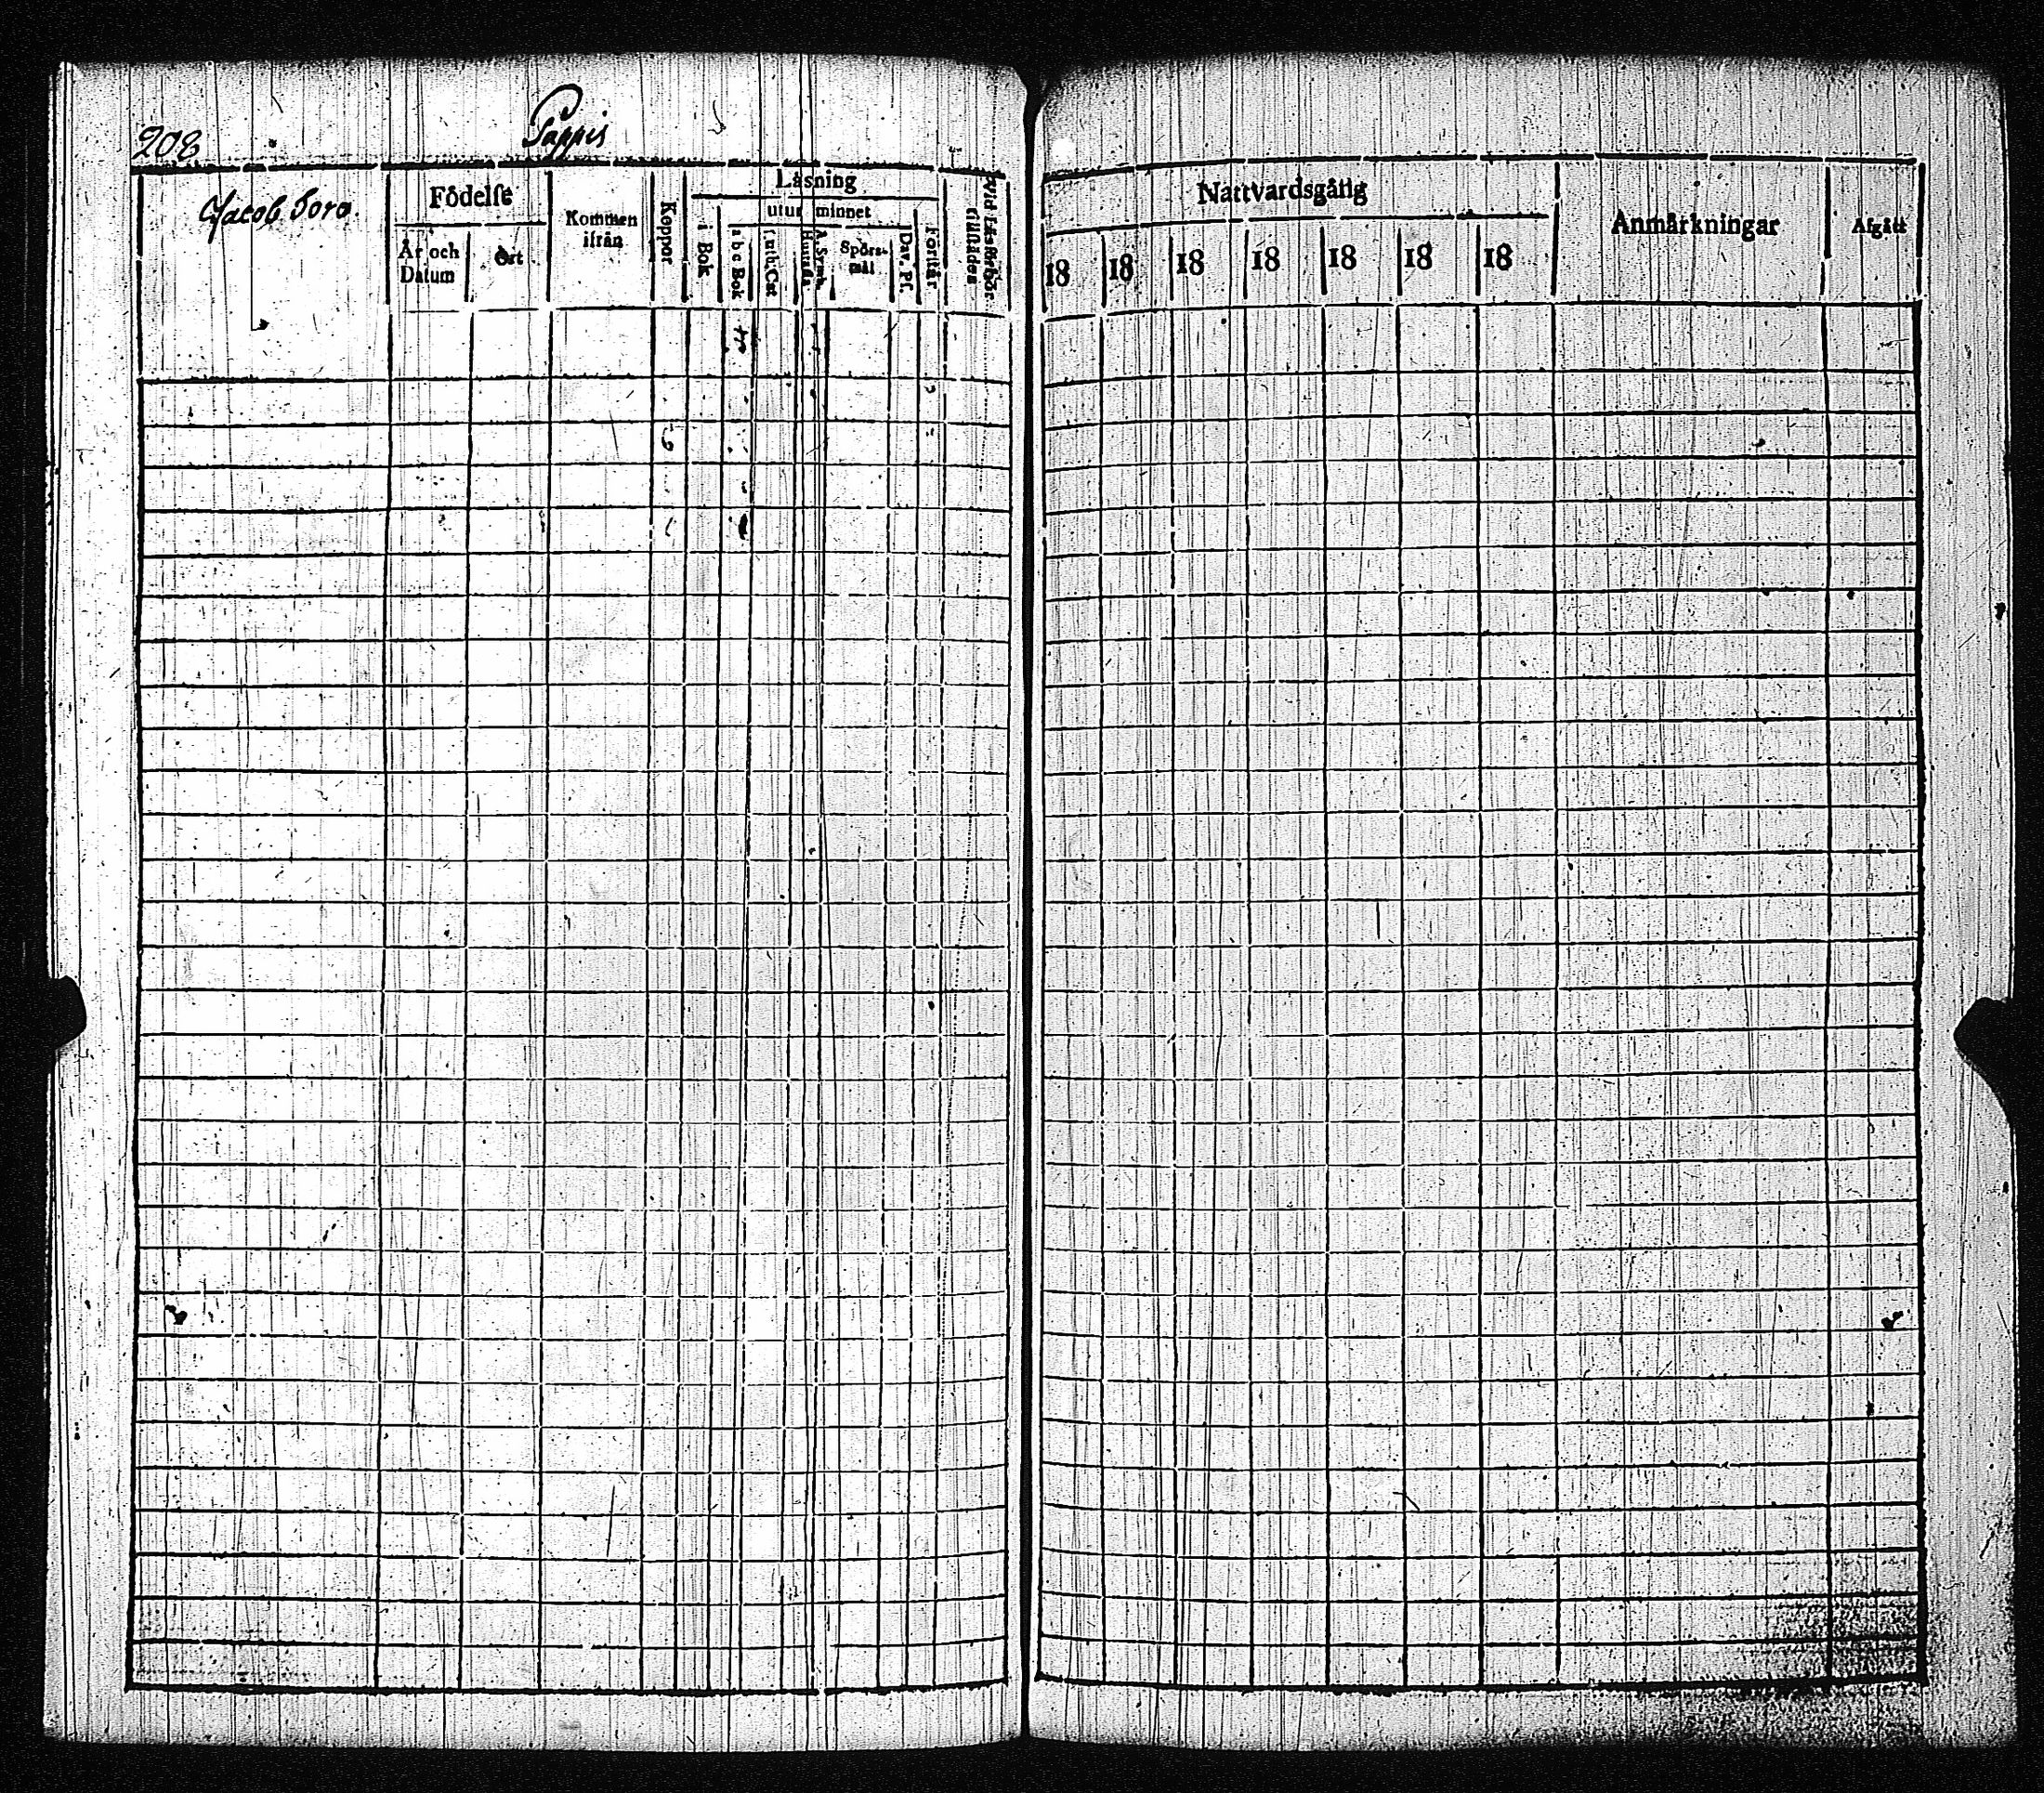 208
Pappis
Jacob Toro.
Födelse
År och Datum
Ort
Kommen ifrån
Koppor
Läsning
i Bok
utur minnet
a b c Bok
Luth. Cat
Hustafla
A. Symb.
Spörsmål
Dav. Ps.
Förstår
Vid Läsförhör tillstädes
Nattvardsgång
18
18
18
18
18
18
18
Anmärkningar
Afgått